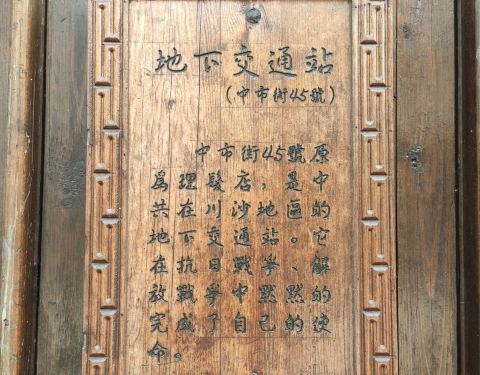 地下交通站
（中市街45號）
中市街45號原
爲理髮店，是中
共在川沙地區的
地下交通站。它
在抗日戰爭、解
放戰爭中默默的
完成了自己的使
命。